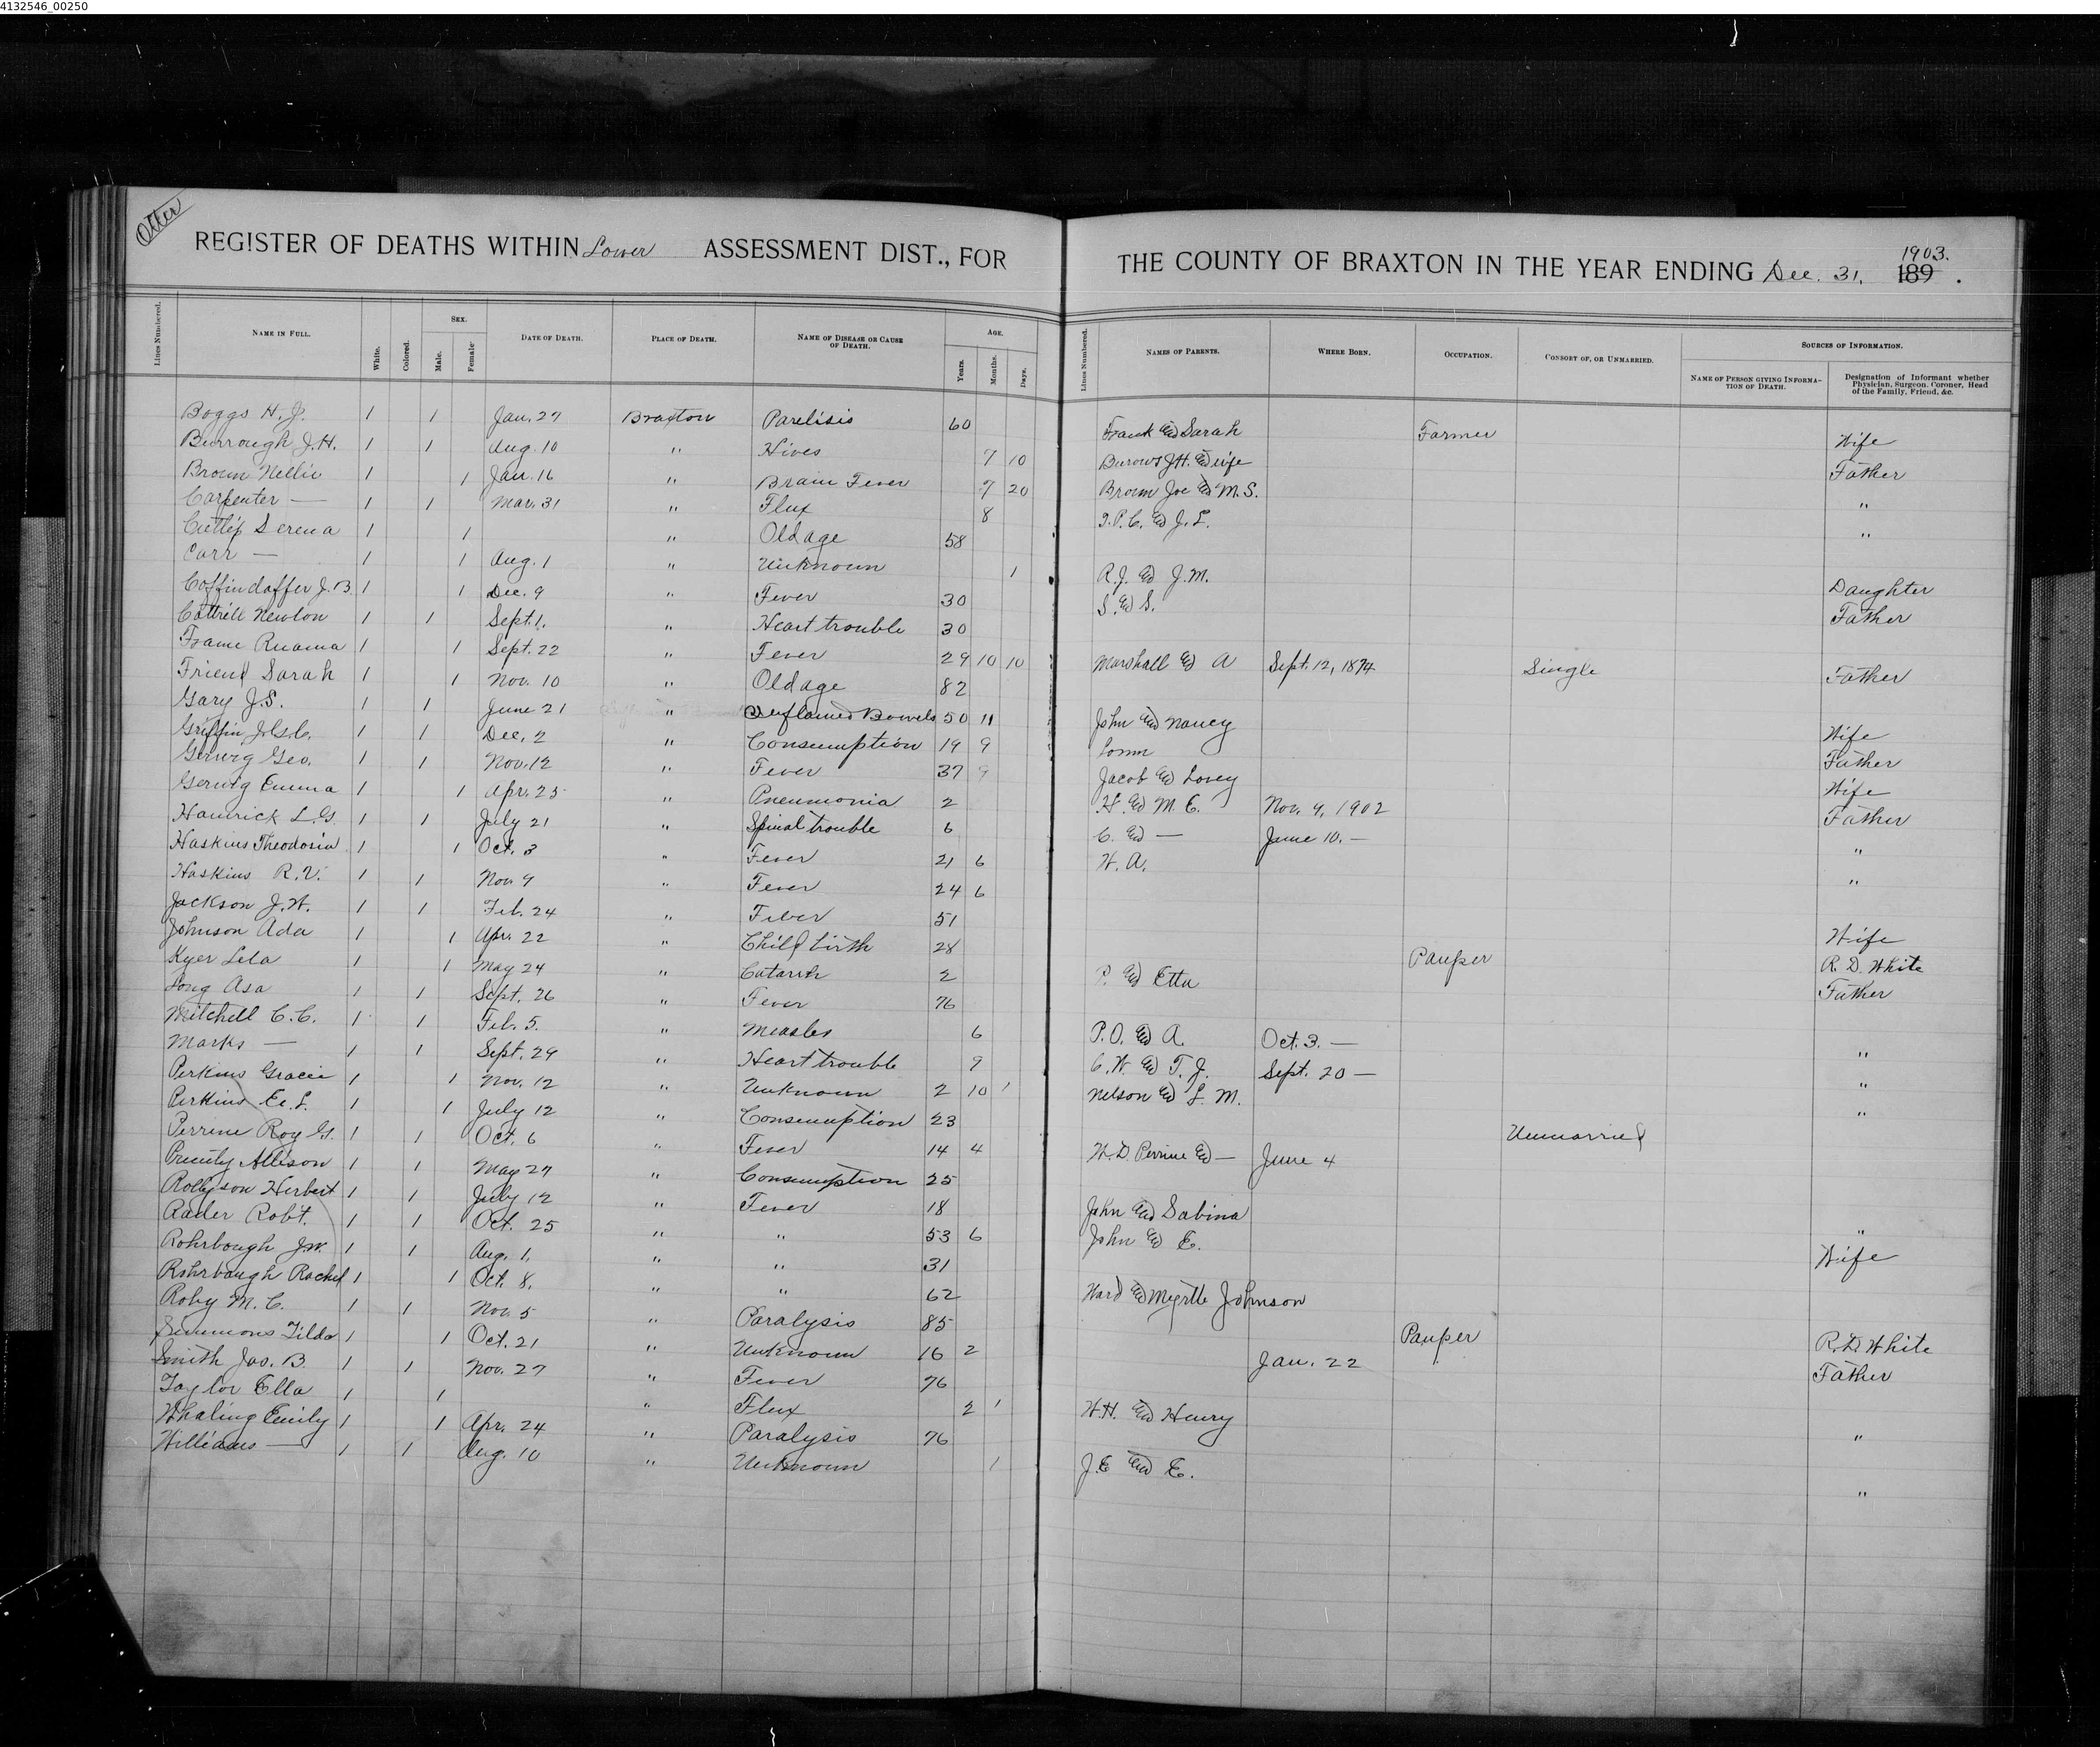 4132546_00250
Otter
REGISTER OF DEATHS WITHIN Lower ASSESSMENT DIST., FOR THE COUNTY OF BRAXTON IN THE YEAR ENDING Dec. 31, 1903. 189 .
Lines Numbered. NAME IN FULL. White. Colored. SEX. Male. Female. DATE OF DEATH. PLACE OF DEATH. NAME OF DISEASE OR CAUSE OF DEATH. AGE. Years. Months. Days. Lines Numbered. NAMES OF PARENTS. WHERE BORN. OCCUPATION. CONSORT OF, OR UNMARRIED. SOURCES OF INFORMATION. NAME OF PERSON GIVING INFORMATION OF DEATH. Designation of Informant whether Physician, Surgeon, Coroner, Head of the Family, Friend, &c.
Boggs H. J. 1 1 Jan. 27 Braxton Parelisis 60 Frank and Sarah Farmer Wife
Burrough J. H. 1 1 Aug. 10 " Hives 7 10 Burows J.H. and wife Father
Brown Nellie 1 1 Jan. 16 " Brain Fever 7 20 Brown Joe and M. S. "
Carpenter — 1 1 Mar. 31 " Flux 8 J. P. C. and J. L. "
Cutlip Serena 1 1 " Old age 58 Daughter
Carr — 1 1 Aug. 1 " Unknown 1 R. J. and J. M. Father
Coffindaffer J. B. 1 1 Dec. 9 " Fever 30 S. and S.
Cottrill Newton 1 1 Sept. 1. " Heart trouble 30
Frame Ruama 1 1 Sept. 22 " Fever 29 10 10 Marshall and A Sept. 12, 1874 Single Father
Friend Sarah 1 1 Nov. 10 " Old age 82
Gary J. S. 1 1 June 21 " Inflamed Bowels 50 11 John and Nancy Wife
Griffin 1 1 Dec. 2 " Consumption 19 9 Father
Gerwig Geo. 1 1 Nov. 12 " Fever 37 9 Jacob and Lovey Wife
Gerwig Emma 1 1 Apr. 25 " Pneumonia 2 H. and M. E. Nov. 9, 1902 Father
Hamrick L. G. 1 1 July 21 " Spinal trouble 6 C. and — June 10. — "
Haskins Theodosia 1 1 Oct. 3 " Fever 21 6 W. A. "
Haskins R. V. 1 1 Nov. 9 " Fever 24 6
Jackson J. W. 1 1 Feb. 24 " Fever 51 Wife
Johnson Ada 1 1 Apr. 22 " Child birth 28 Pauper R. D. White
Kyer Lela 1 1 May 24 " Catarrh 2 P. and Etta Father
Long Asa 1 1 Sept. 26 " Fever 76
Mitchell C. C. 1 1 Feb. 5. " Measles 6 P. O. and A. Oct. 3. — "
Marks — 1 1 Sept. 29 " Heart trouble 9 C. W. and T. J. Sept. 20 — "
Perkins Gracie 1 1 Nov. 12 " Unknown 2 10 1 Nelson and L. M. "
Perkins L. 1 1 July 12 " Consumption 23 Unmarried
Perrine Roy G. 1 1 Oct. 6 " Fever 14 4 W. D. Perrine and — June 4
Prunty Allison 1 1 May 27 " Consumption 25
Rollyson Herbert 1 1 July 12 " Fever 18 John and Sabina "
Rader Robt. 1 1 Oct. 25 " " 53 6 John and E. Wife
Rohrbough J. W. 1 1 Aug. 1. " " 31
Rohrbaugh Rachel 1 1 Oct. 8. " " 62 Ward and Myrtle Johnson
Roby M. C. 1 1 Nov. 5 " Paralysis 85 Pauper R. D. White
Simmons Tilda 1 1 Oct. 21 " Unknown 16 2 Jan. 22 Father
Smith Jas. B. 1 1 Nov. 27 " Fever 76
Taylor Ella 1 1 " Flux 2 1 W. H. and Henry "
Whaling Emily 1 1 Apr. 24 " Paralysis 76
Williams — 1 1 Aug. 10 " Unknown 1 J. E. and E. "